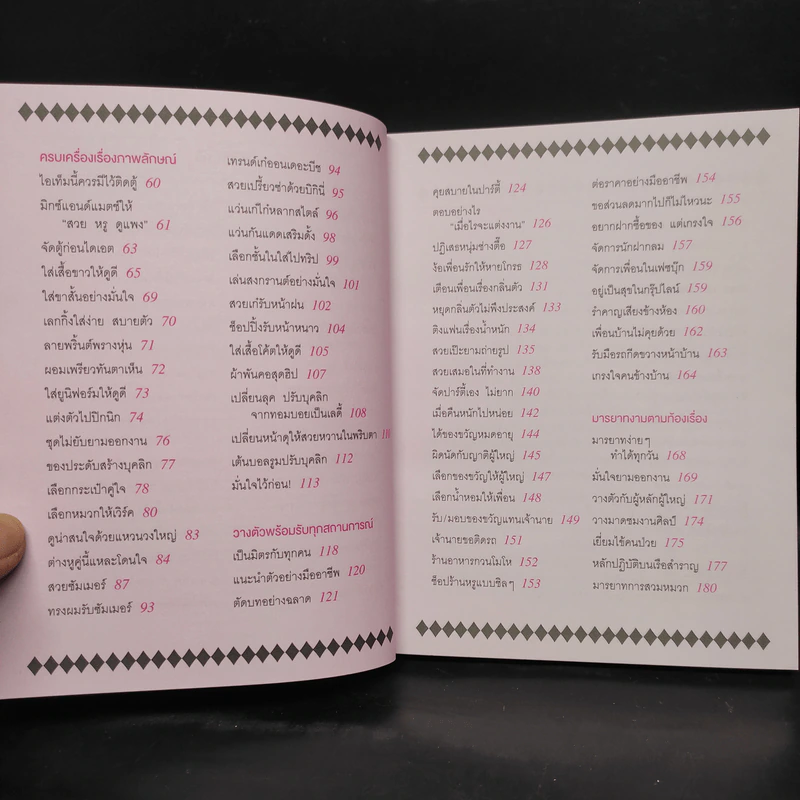 ครบเครื่องเรื่องภาพลักษณ์
ไอเท็มนี้ควรมีไว้ติดตู้ 60
มิกซ์แอนด์แมตช์ให้
"สวย หรู ดูแพง" 61
จัดตู้ก่อนไดเอต 63
ใส่เสื้อขาวให้ดูดี 65
ใส่ขาสั้นอย่างมั่นใจ 69
เลกกิ้งใส่ง่าย สบายตัว 70
ลายพริ้นต์พรางหุ่น 71
ผอมเพรียวทันตาเห็น 72
ใส่ยูนิฟอร์มให้ดูดี 73
แต่งตัวไปปิกนิก 74
ชุดไม่ยับยามออกงาน 76
ของประดับสร้างบุคลิก 77
เลือกกระเป๋าคู่ใจ 78
เลือกหมวกให้เวิร์ค 80
ดูน่าสนใจด้วยแหวนวงใหญ่ 83
ต่างหูคู่นี้แหละโดนใจ 84
สวยซัมเมอร์ 87
ทรงผมรับซัมเมอร์ 93
เทรนด์เก๋ออนเดอะบีช 94
สวยเปรี้ยวซ่าด้วยบิกินี่ 95
แว่นเก๋ไก๋หลากสไตล์ 96
แว่นกันแดดเสริมดั้ง 98
เลือกชั้นในใส่ไปทริป 99
เล่นสงกรานต์อย่างมั่นใจ 101
สวยเก๋รับหน้าฝน 102
ช็อปปิ้งรับหน้าหนาว 104
ใส่เสื้อโค้ตให้ดูดี 105
ผ้าพันคอสุดฮิป 107
เปลี่ยนลุค ปรับบุคลิก
จากทอมบอยเป็นเลดี้ 108
เปลี่ยนหน้าดุให้สวยหวานในพริบตา 110
เต้นบอลรูมปรับบุคลิก 112
มั่นใจไว้ก่อน! 113
วางตัวพร้อมรับทุกสถานการณ์
เป็นมิตรกับทุกคน 118
แนะนำตัวอย่างมืออาชีพ 120
ตัดบทอย่างฉลาด 121
คุยสบายในปาร์ตี้ 124
ตอบอย่างไร
"เมื่อไรจะแต่งงาน" 126
ปฏิเสธหนุ่มช่างตื๊อ 127
ง้อเพื่อนรักให้หายโกรธ 128
เตือนเพื่อนเรื่องกลิ่นตัว 131
หยุดกลิ่นตัวไม่พึงประสงค์ 133
ติงแฟนเรื่องน้ำหนัก 134
สวยเป๊ะยามถ่ายรูป 135
สวยเสมอในที่ทำงาน 138
จัดปาร์ตี้เอง ไม่ยาก 140
เมื่อคืนหนักไปหน่อย 142
ได้ของขวัญหมดอายุ 144
ผิดนัดกับญาติผู้ใหญ่ 145
เลือกของขวัญให้ผู้ใหญ่ 147
เลือกน้ำหอมให้เพื่อน 148
รับ/มอบของขวัญแทนเจ้านาย 149
เจ้านายขอติดรถ 151
ร้านอาหารกวนโมโห 152
ช็อปร้านหรูแบบชิลๆ 153
ต่อราคาอย่างมืออาชีพ 154
ขอส่วนลดมากไปก็ไม่ไหวนะ 155
อยากฝากซื้อของ แต่เกรงใจ 156
จัดการนักฝากลม 157
จัดการเพื่อนในเฟซบุ๊ก 159
อยู่เป็นสุขในกรุ๊ปไลน์ 159
รำคาญเสียงข้างห้อง 160
เพื่อนบ้านไม่คุยด้วย 162
รับมือรถกีดขวางหน้าบ้าน 163
เกรงใจคนข้างบ้าน 164
มารยาทงามตามท้องเรื่อง
มารยาทง่ายๆ
ทำได้ทุกวัน 168
มั่นใจยามออกงาน 169
วางตัวกับผู้หลักผู้ใหญ่ 171
วางมาดชมงานศิลป์ 174
เยี่ยมไข้คนป่วย 175
หลักปฏิบัติบนเรือสำราญ 177
มารยาทการสวมหมวก 180